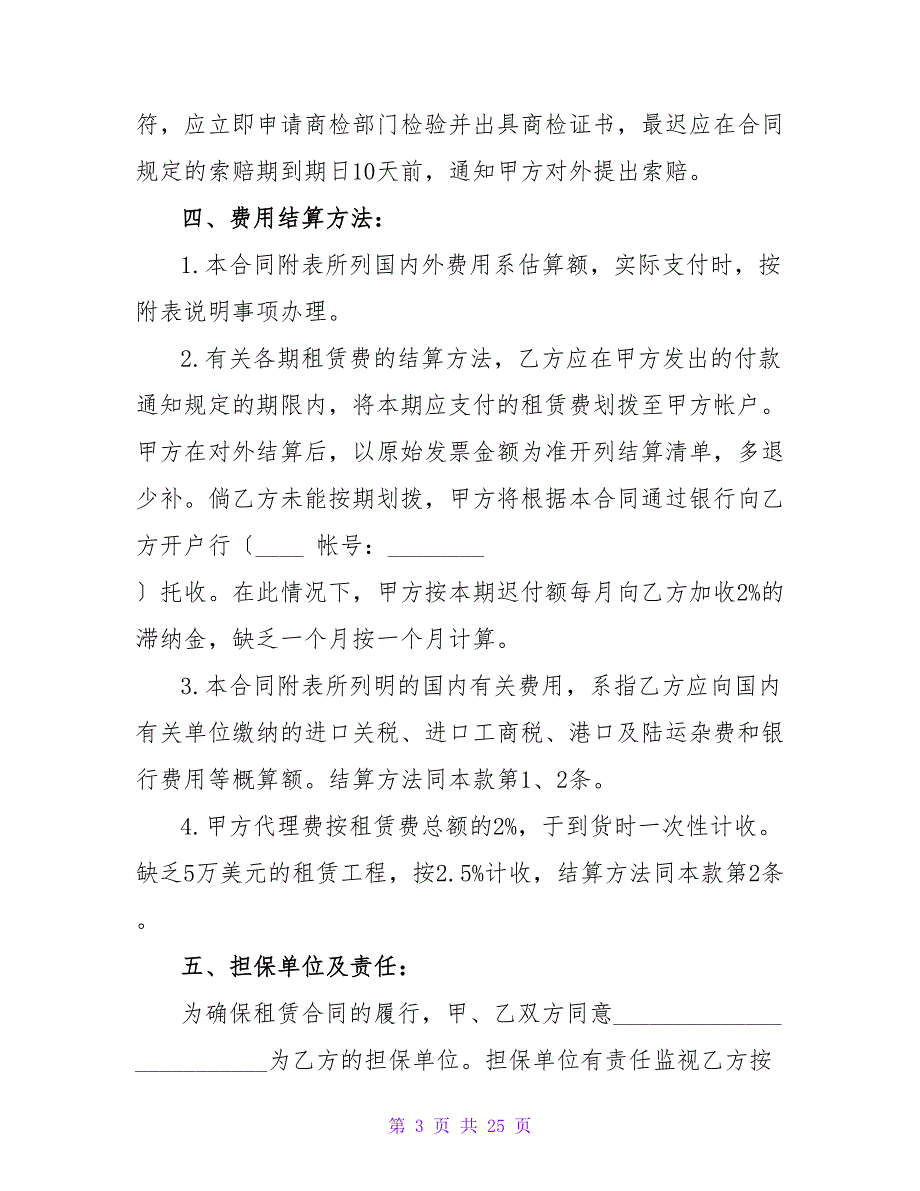 符，应立即申请商检部门检验并出具商检证书，最迟应在合同
规定的索赔期到期日10天前，通知甲方对外提出索赔。
四、费用结算方法：
1.本合同附表所列国内外费用系估算额，实际支付时，按
附表说明事项办理。
2.有关各期租赁费的结算方法，乙方应在甲方发出的付款
通知规定的期限内，将本期应支付的租赁费划拨至甲方帐户。
甲方在对外结算后，以原始发票金额为准开列结算清单，多退
少补。倘乙方未能按期划拨，甲方将根据本合同通过银行向乙
方开户行〔____ 帐号：________
〕托收。在此情况下，甲方按本期迟付额每月向乙方加收2%的
滞纳金，缺乏一个月按一个月计算。
3.本合同附表所列明的国内有关费用，系指乙方应向国内
有关单位缴纳的进口关税、进口工商税、港口及陆运杂费和银
行费用等概算额。结算方法同本款第1、2条。
4.甲方代理费按租赁费总额的2%，于到货时一次性计收。
缺乏5万美元的租赁工程，按2.5%计收，结算方法同本款第2条
。
五、担保单位及责任：
为确保租赁合同的履行，甲、乙双方同意______________
___________为乙方的担保单位。担保单位有责任监视乙方按
第 3 页 共 25 页